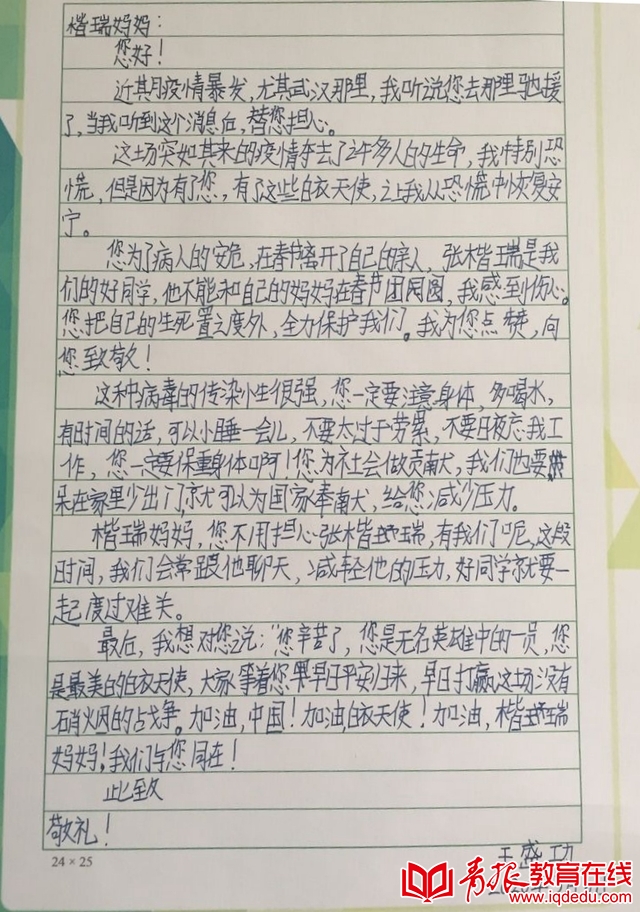 楷瑞妈妈：
您好！
近期疫情暴发，尤其武汉那里，我听说您去那里驰援
了，当我听到这个消息后，替您担心。
这场突如其来的疫情夺去了2千多人的生命，我特别恐
慌，但是因为有了您，有了这些白衣天使，让我从恐慌中恢复安
宁。
您为了病人的安危，在春节离开了自己的亲人，张楷瑞是我
们的好同学，他不能和自己的妈妈在春节团圆，我感到伤心。
您把自己的生死置之度外，全力保护我们。我为您点赞，向
您致敬！
这种病毒的传染性很强，您一定要注意身体，多喝水，
有时间的话，可以小睡一会儿，不要太过于劳累，不要日夜忘我工
作，您一定要保重身体啊！您为社会做贡献，我们也要
呆在家里少出门就可以为国家奉献，给您减少压力。
楷瑞妈妈，您不用担心张楷瑞，有我们呢，这段
时间，我们会常跟他聊天，减轻他的压力，好同学就要一
起度过难关。
最后，我想对您说："您辛苦了，您是无名英雄中的一员，您
是最美的白衣天使，大家等着您早日平安归来，早日打赢这场没有
硝火因的战争。加油，中国！加油，白衣天使！加油，楷瑞
妈妈！我们与您同在！
此致
敬礼！
24×25
王盛功
青报教育在线
www.iqdedu.com